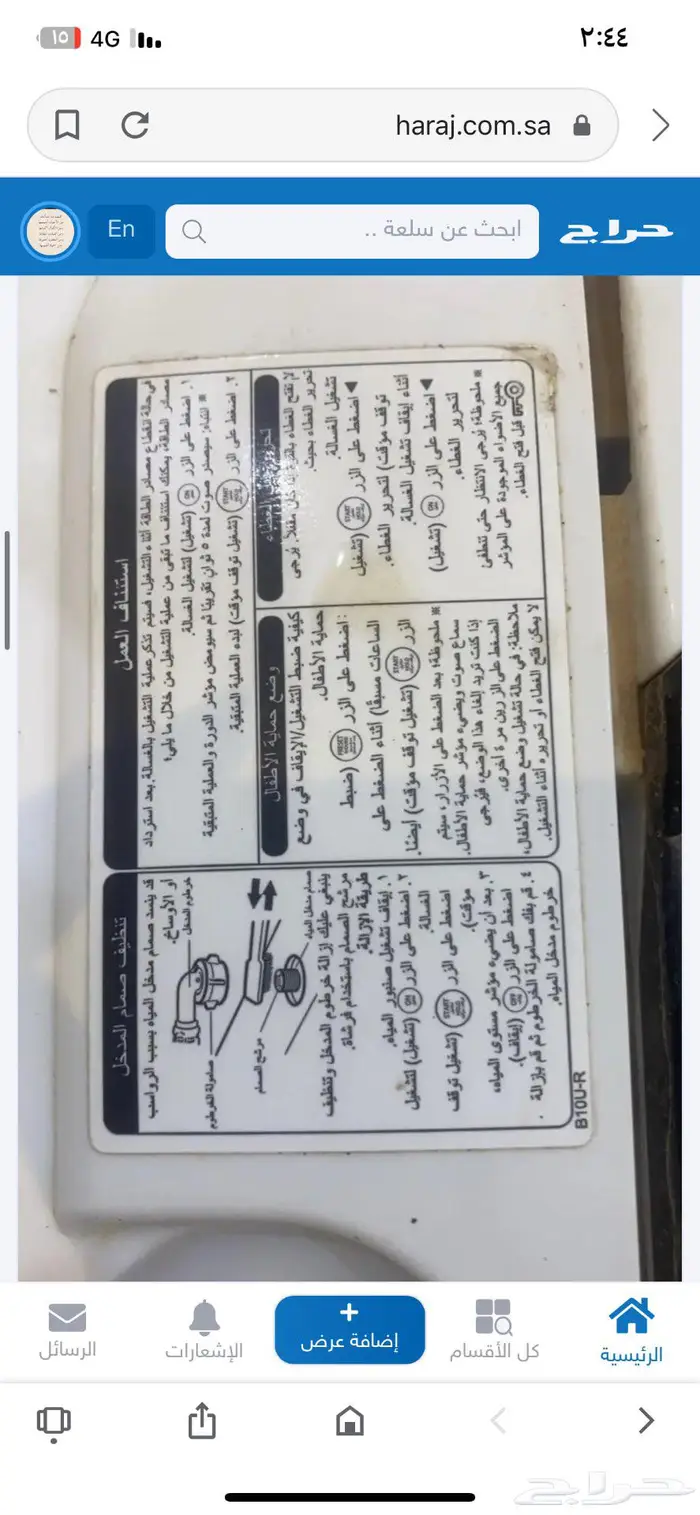 ٢:٤٤
4G
١٥
haraj.com.sa
حراج
ابحث عن سلعة ..
En
استئناف العمل
في حالة انقطاع مصادر الطاقة أثناء التشغيل، فسيتم تذكر عملية التشغيل بالغسالة. بعد استرداد
مصادر الطاقة، يمكنك استئناف ما تبقى من عملية التشغيل من خلال ما يلي؛
١. اضغط على الزر ON (تشغيل) لتشغيل الغسالة.
※ انتباه: سيصدر صوت لمدة ٥ ثوان تقريبًا ثم سيومض مؤشر الدورة والعملية المتبقية
٢. اضغط على الزر START HOLD (تشغيل توقف مؤقت) لبدء العملية المتبقية.
الغطاء
لا تفتح الغطاء
مقفلاً. يُرجى
تحرير الغطاء بحيث.
◀ اضغط على الزر START HOLD (تشغيل
توقف مؤقت) لتحرير الغطاء.
أثناء إيقاف تشغيل الغسالة.
◀ اضغط على الزر ON (تشغيل)
لتحرير الغطاء.
※ ملحوظة: يُرجى الانتظار حتى تنطفئ
جميع الأضواء الموجودة على المؤشر
قبل فتح الغطاء.
وضع حماية الأطفال
كيفية ضبط التشغيل/الإيقاف في وضع
حماية الأطفال.
: اضغط على الزر PRESET (ضبط
الساعات مسبقًا) أثناء الضغط على
الزر START HOLD (تشغيل توقف مؤقت) أيضًا.
※ ملحوظة: بعد الضغط على الأزرار، سيتم
سماع صوت ويضيء مؤشر حماية الأطفال.
إذا كنت تريد إلغاء هذا الوضع، فيُرجى
الضغط على الزرين مرة أخرى.
ملاحظة: في حالة تشغيل وضع حماية الأطفال،
لا يمكن فتح الغطاء أو تحريره أثناء التشغيل.
تنظيف صمام المدخل
قد ينسد صمام مدخل المياه بسبب الرواسب
أو الأوساخ.
خرطوم المدخل
صمام مدخل المياه
صامولة الخرطوم
مرشح الصمام
ينبغي عليك إزالة خرطوم المدخل وتنظيف
مرشح الصمام باستخدام فرشاة.
طريقة الإزالة.
١. إيقاف تشغيل صنبور المياه.
٢. اضغط على الزر ON (تشغيل) لتشغيل
الغسالة.
اضغط على الزر START HOLD (تشغيل توقف
مؤقت).
٣. بعد أن يضيء مؤشر مستوى المياه،
اضغط على الزر OFF (إيقاف).
٤. قم بفك صامولة الخرطوم ثم قم بإزالة
خرطوم مدخل المياه.
B10U-R
الرئيسية
كل الأقسام
+
إضافة عرض
الإشعارات
الرسائل
حراج